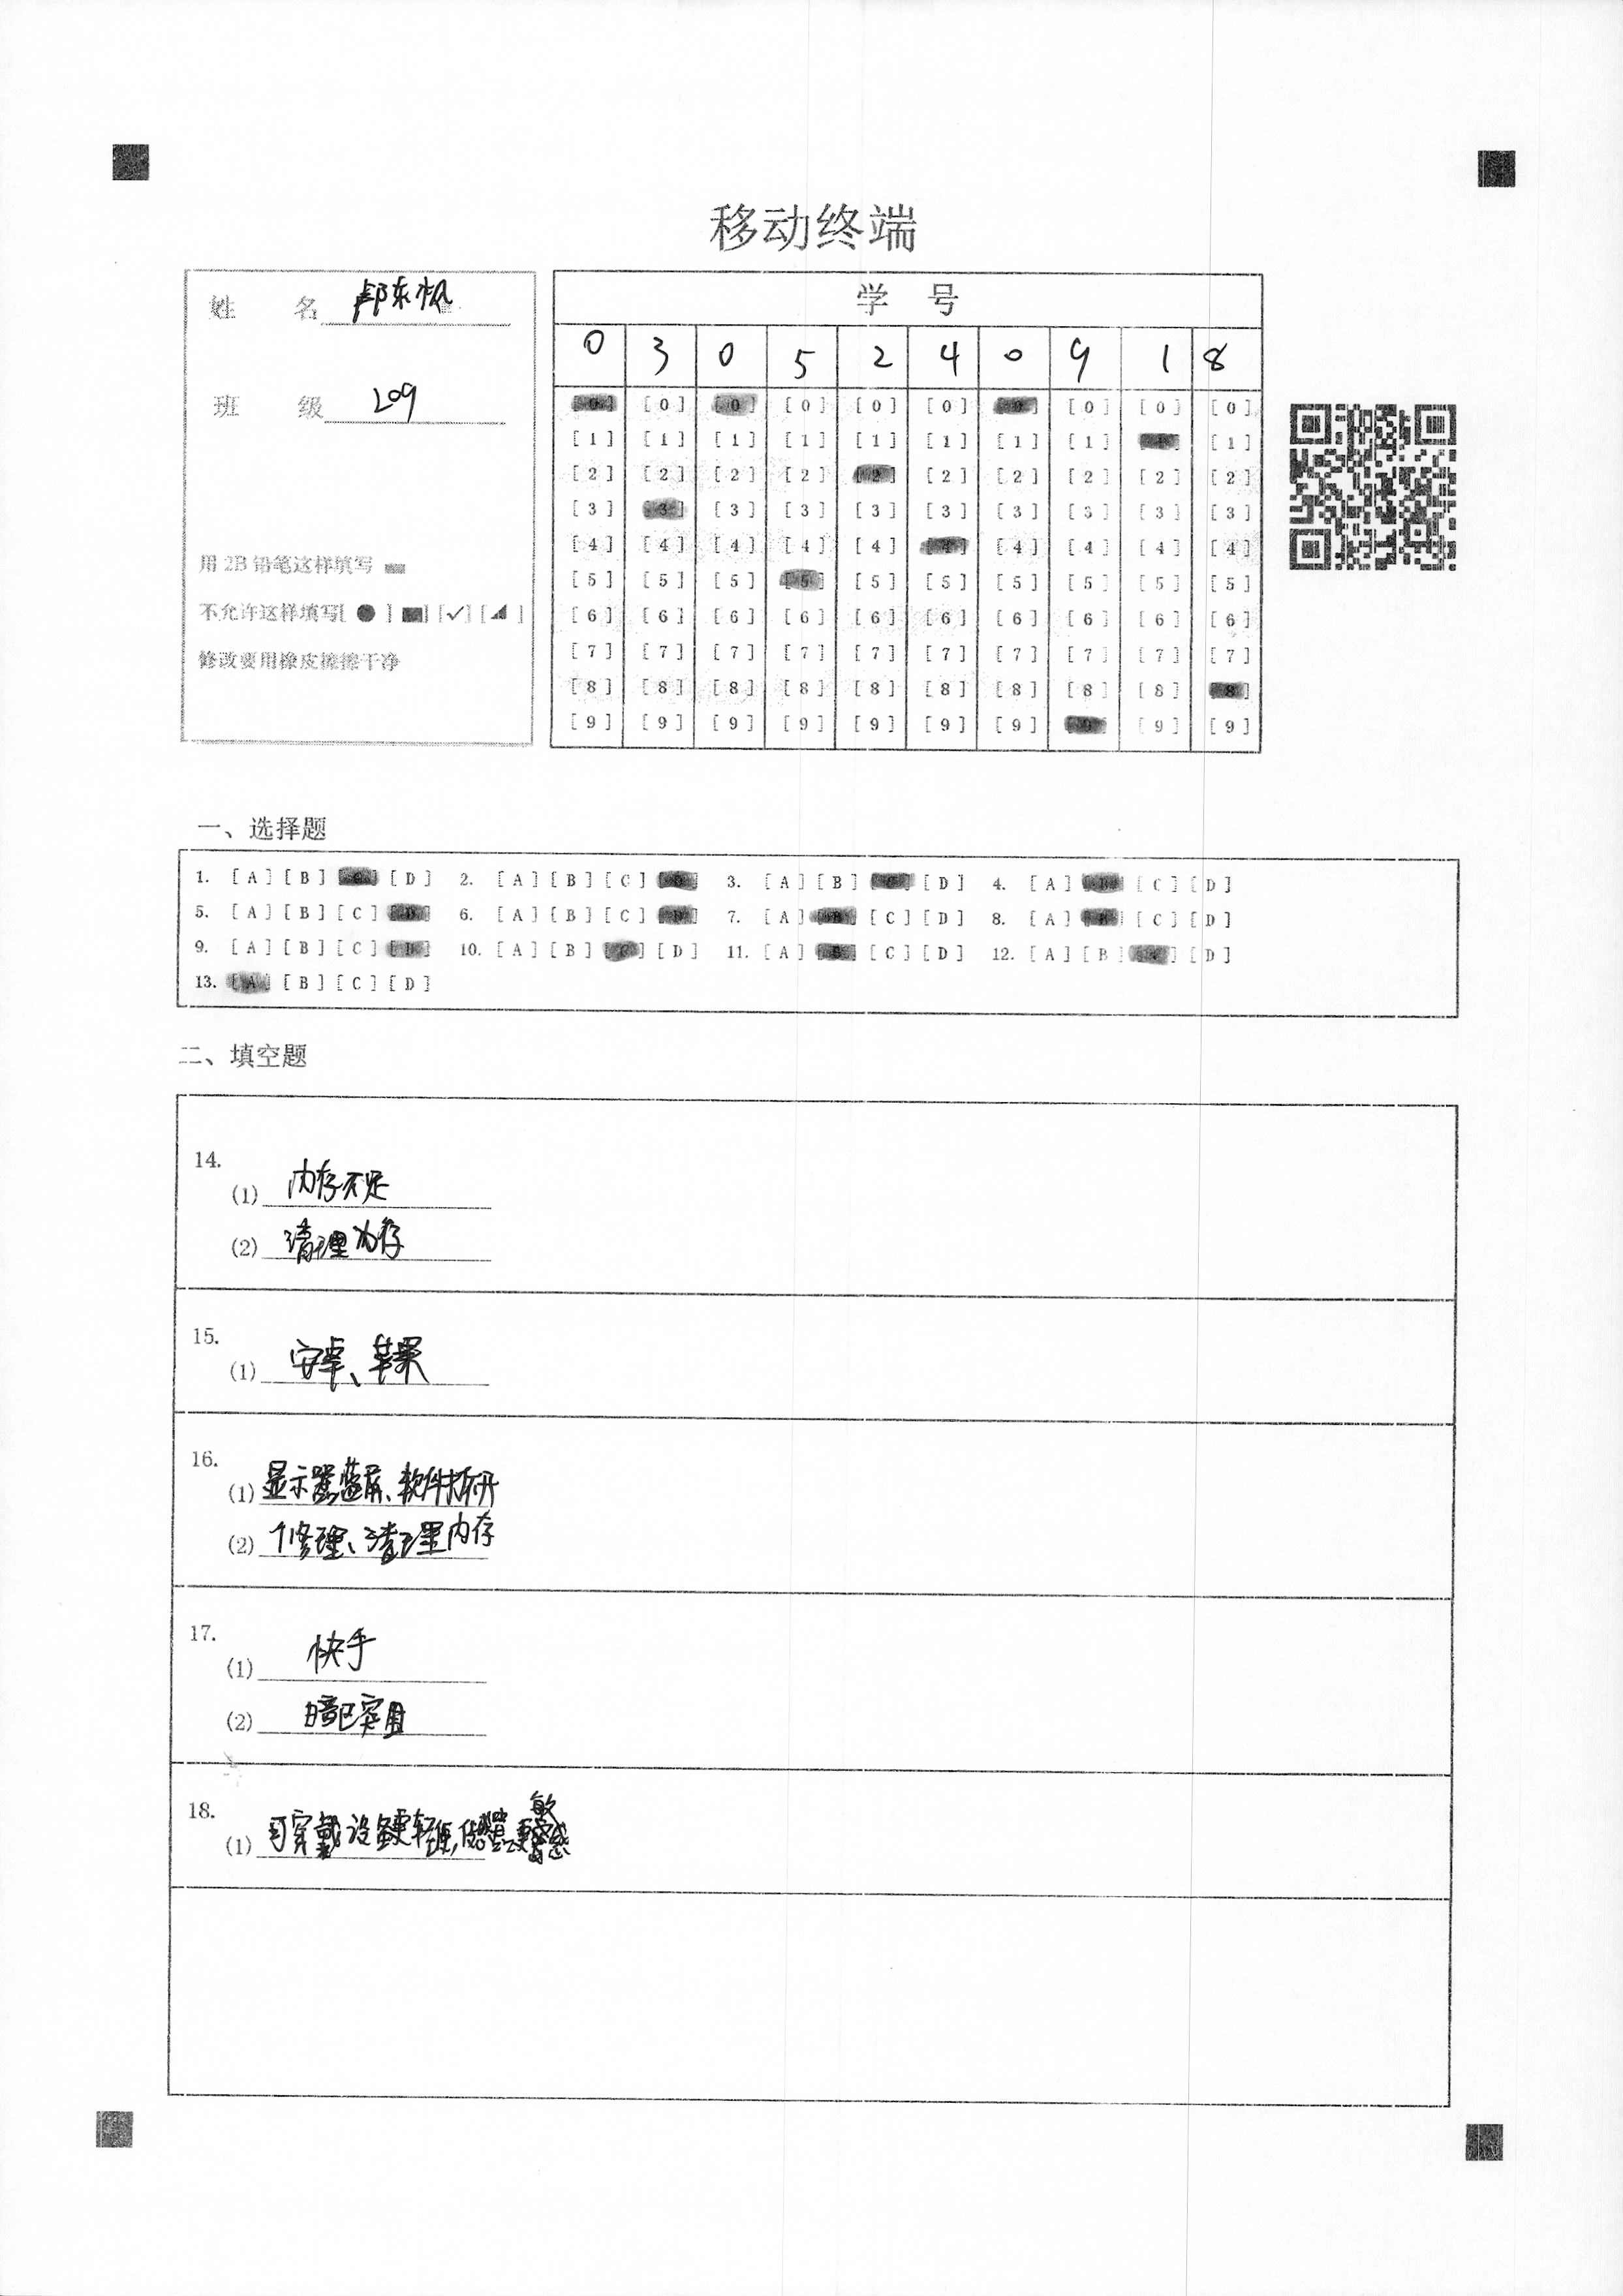 移动终端
姓 名
班 级 209
用 2B 铅笔这样填写
不允许这样填写[ ● ] [✓] [ ]
修改要用橡皮擦擦干净
学 号
0 3 0 5 2 4 0 9 1 8
[0] [0] [0] [0] [0] [0] [0] [0] [0] [0]
[1] [1] [1] [1] [1] [1] [1] [1] [1] [1]
[2] [2] [2] [2] [2] [2] [2] [2] [2] [2]
[3] [3] [3] [3] [3] [3] [3] [3] [3] [3]
[4] [4] [4] [4] [4] [4] [4] [4] [4] [4]
[5] [5] [5] [5] [5] [5] [5] [5] [5] [5]
[6] [6] [6] [6] [6] [6] [6] [6] [6] [6]
[7] [7] [7] [7] [7] [7] [7] [7] [7] [7]
[8] [8] [8] [8] [8] [8] [8] [8] [8] [8]
[9] [9] [9] [9] [9] [9] [9] [9] [9] [9]
一、选择题
1. [A] [B] [C] [D] 2. [A] [B] [C] [D] 3. [A] [B] [C] [D] 4. [A] [B] [C] [D]
5. [A] [B] [C] [D] 6. [A] [B] [C] [D] 7. [A] [B] [C] [D] 8. [A] [B] [C] [D]
9. [A] [B] [C] [D] 10. [A] [B] [C] [D] 11. [A] [B] [C] [D] 12. [A] [B] [C] [D]
13. [A] [B] [C] [D]
二、填空题
14.
(1) 内存不足
(2) 清理内存
15.
(1) 安卓、苹果
16.
(1) 显示器蓝屏、软件打不开
(2) 修理、清理内存
17.
(1) 快手
(2) 实用
18.
(1) 可穿戴设备更轻便,更敏感